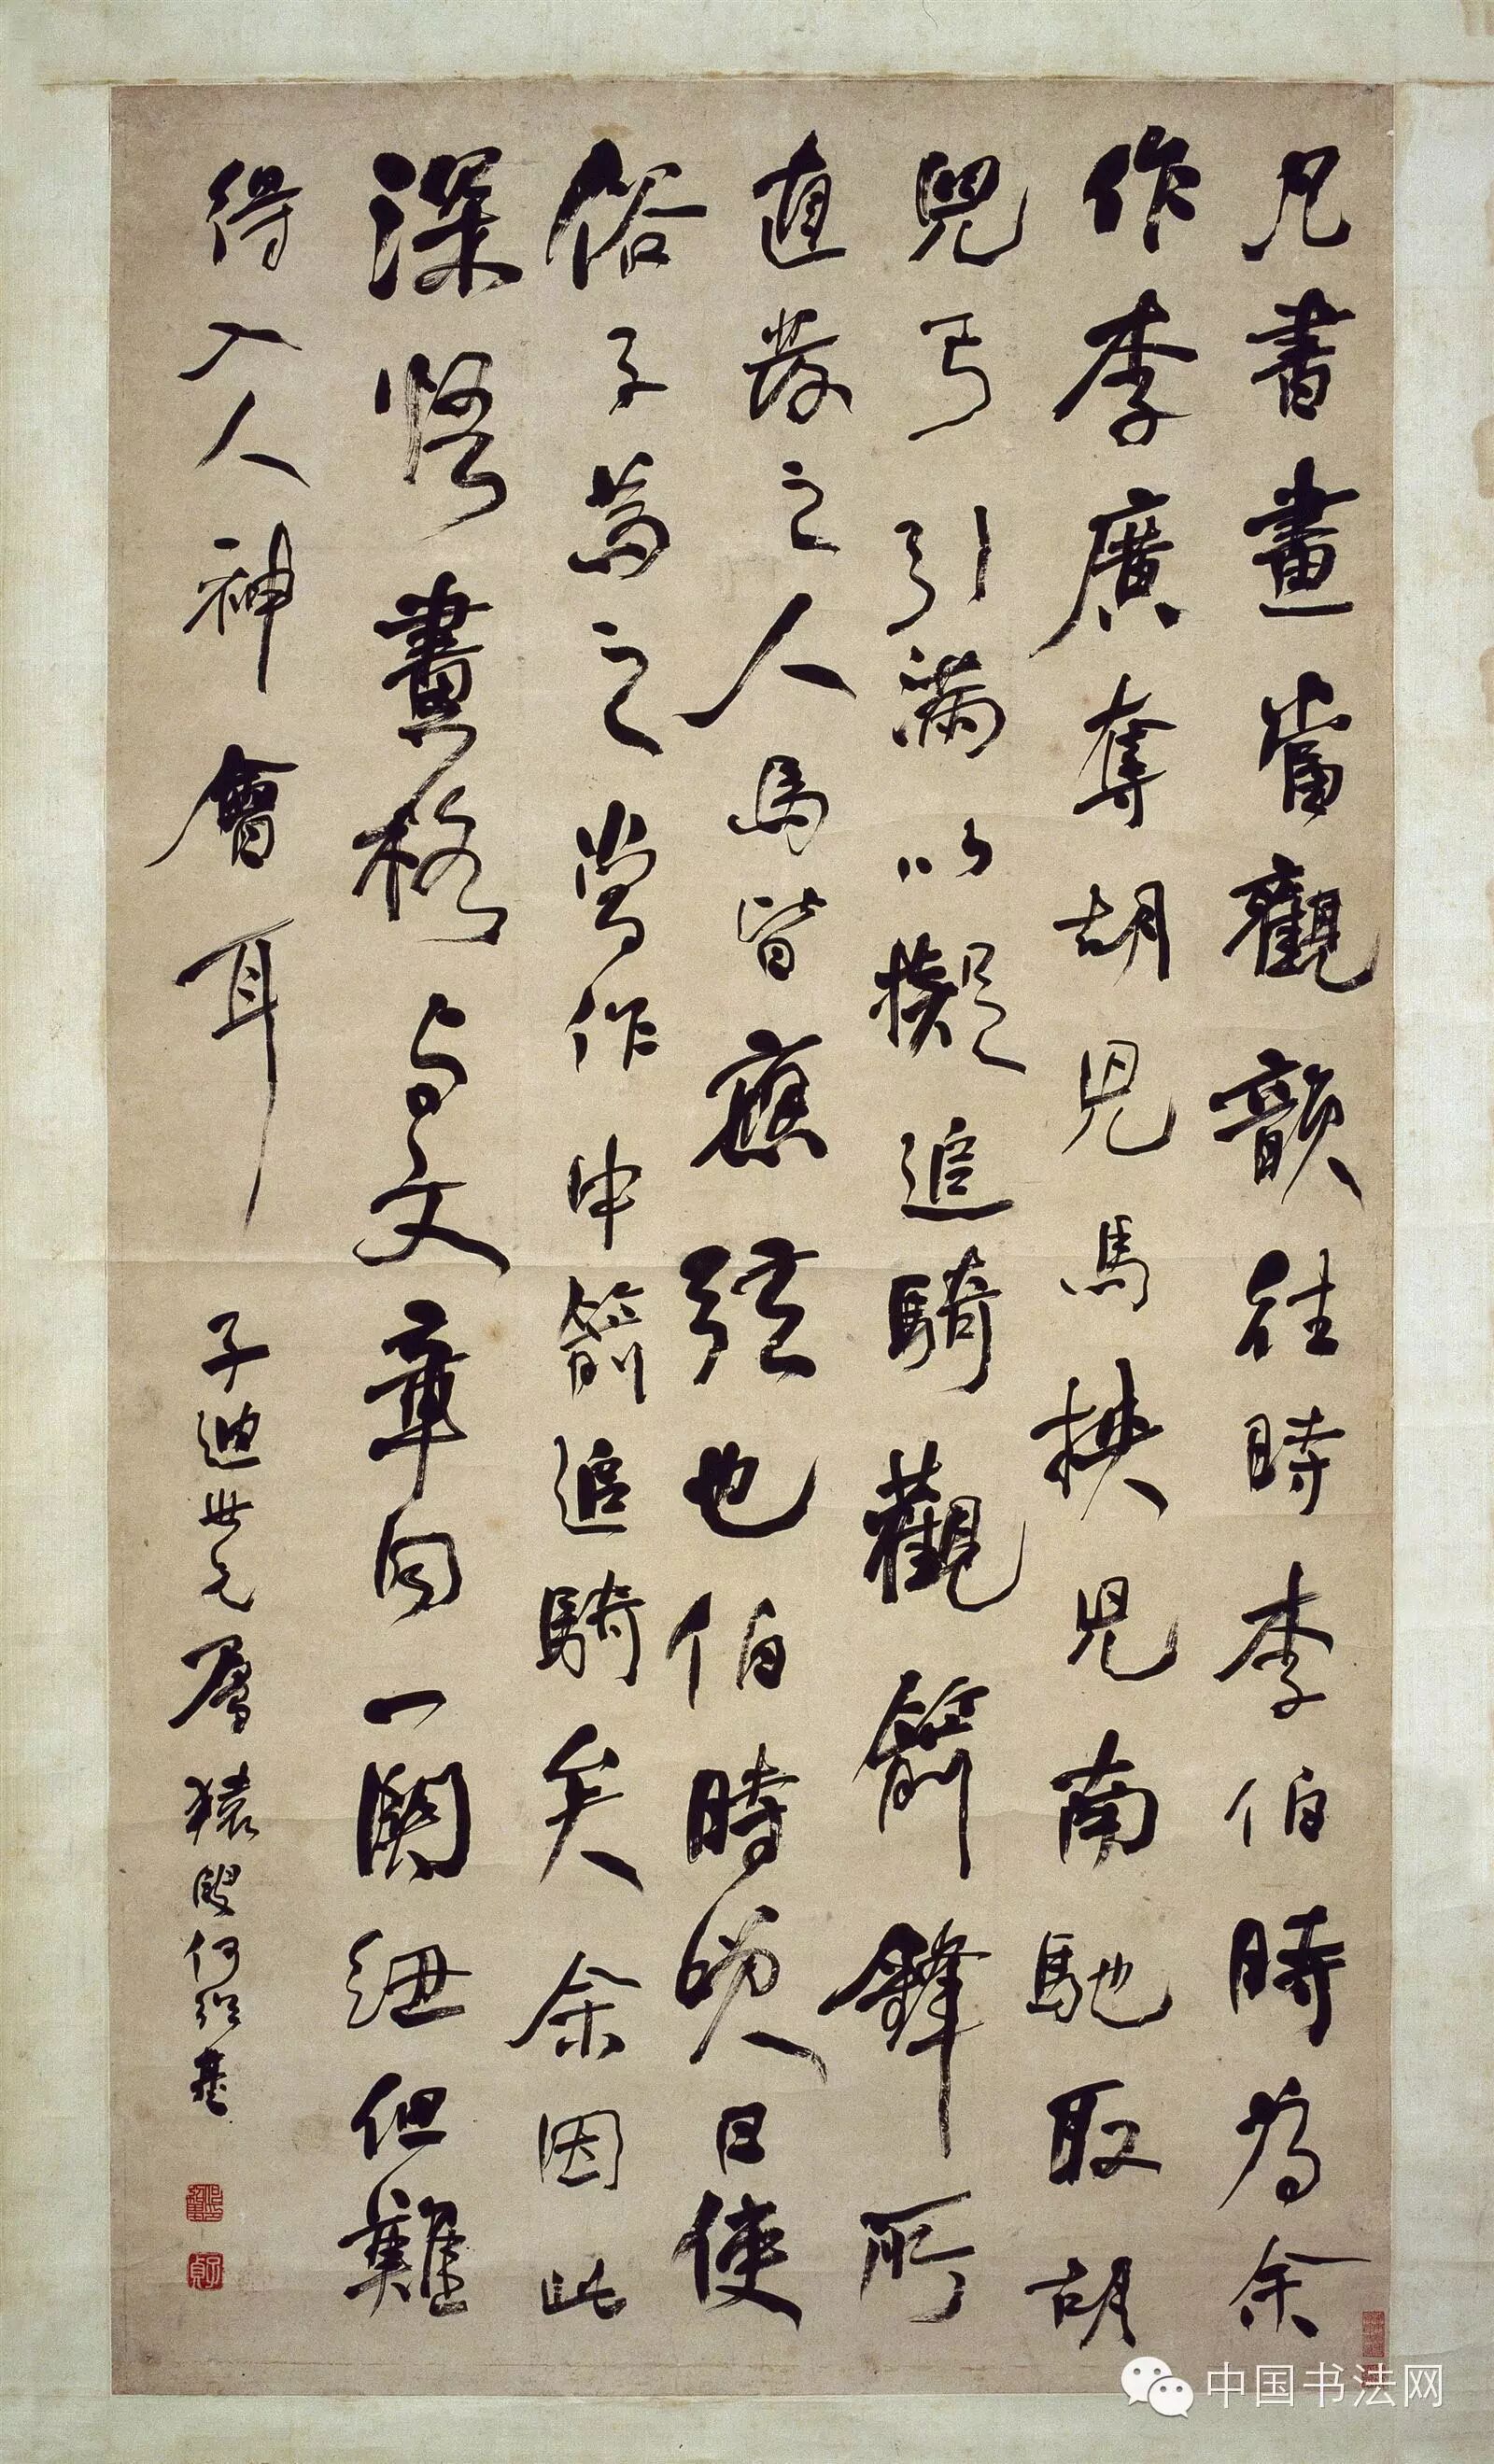 凡書畫當觀韻往時李伯時為余
作李廣奪胡兒馬挾兒南馳取胡
兒弓引滿以擬追騎觀箭鋒所
直發之人馬皆應弦也伯時笑曰使
俗子為之當作中箭追騎矣余因此
深悟畫格與文章同一關紐但難
得入人神會耳
子迪世兄屬 猨叟何紹基
中国书法网